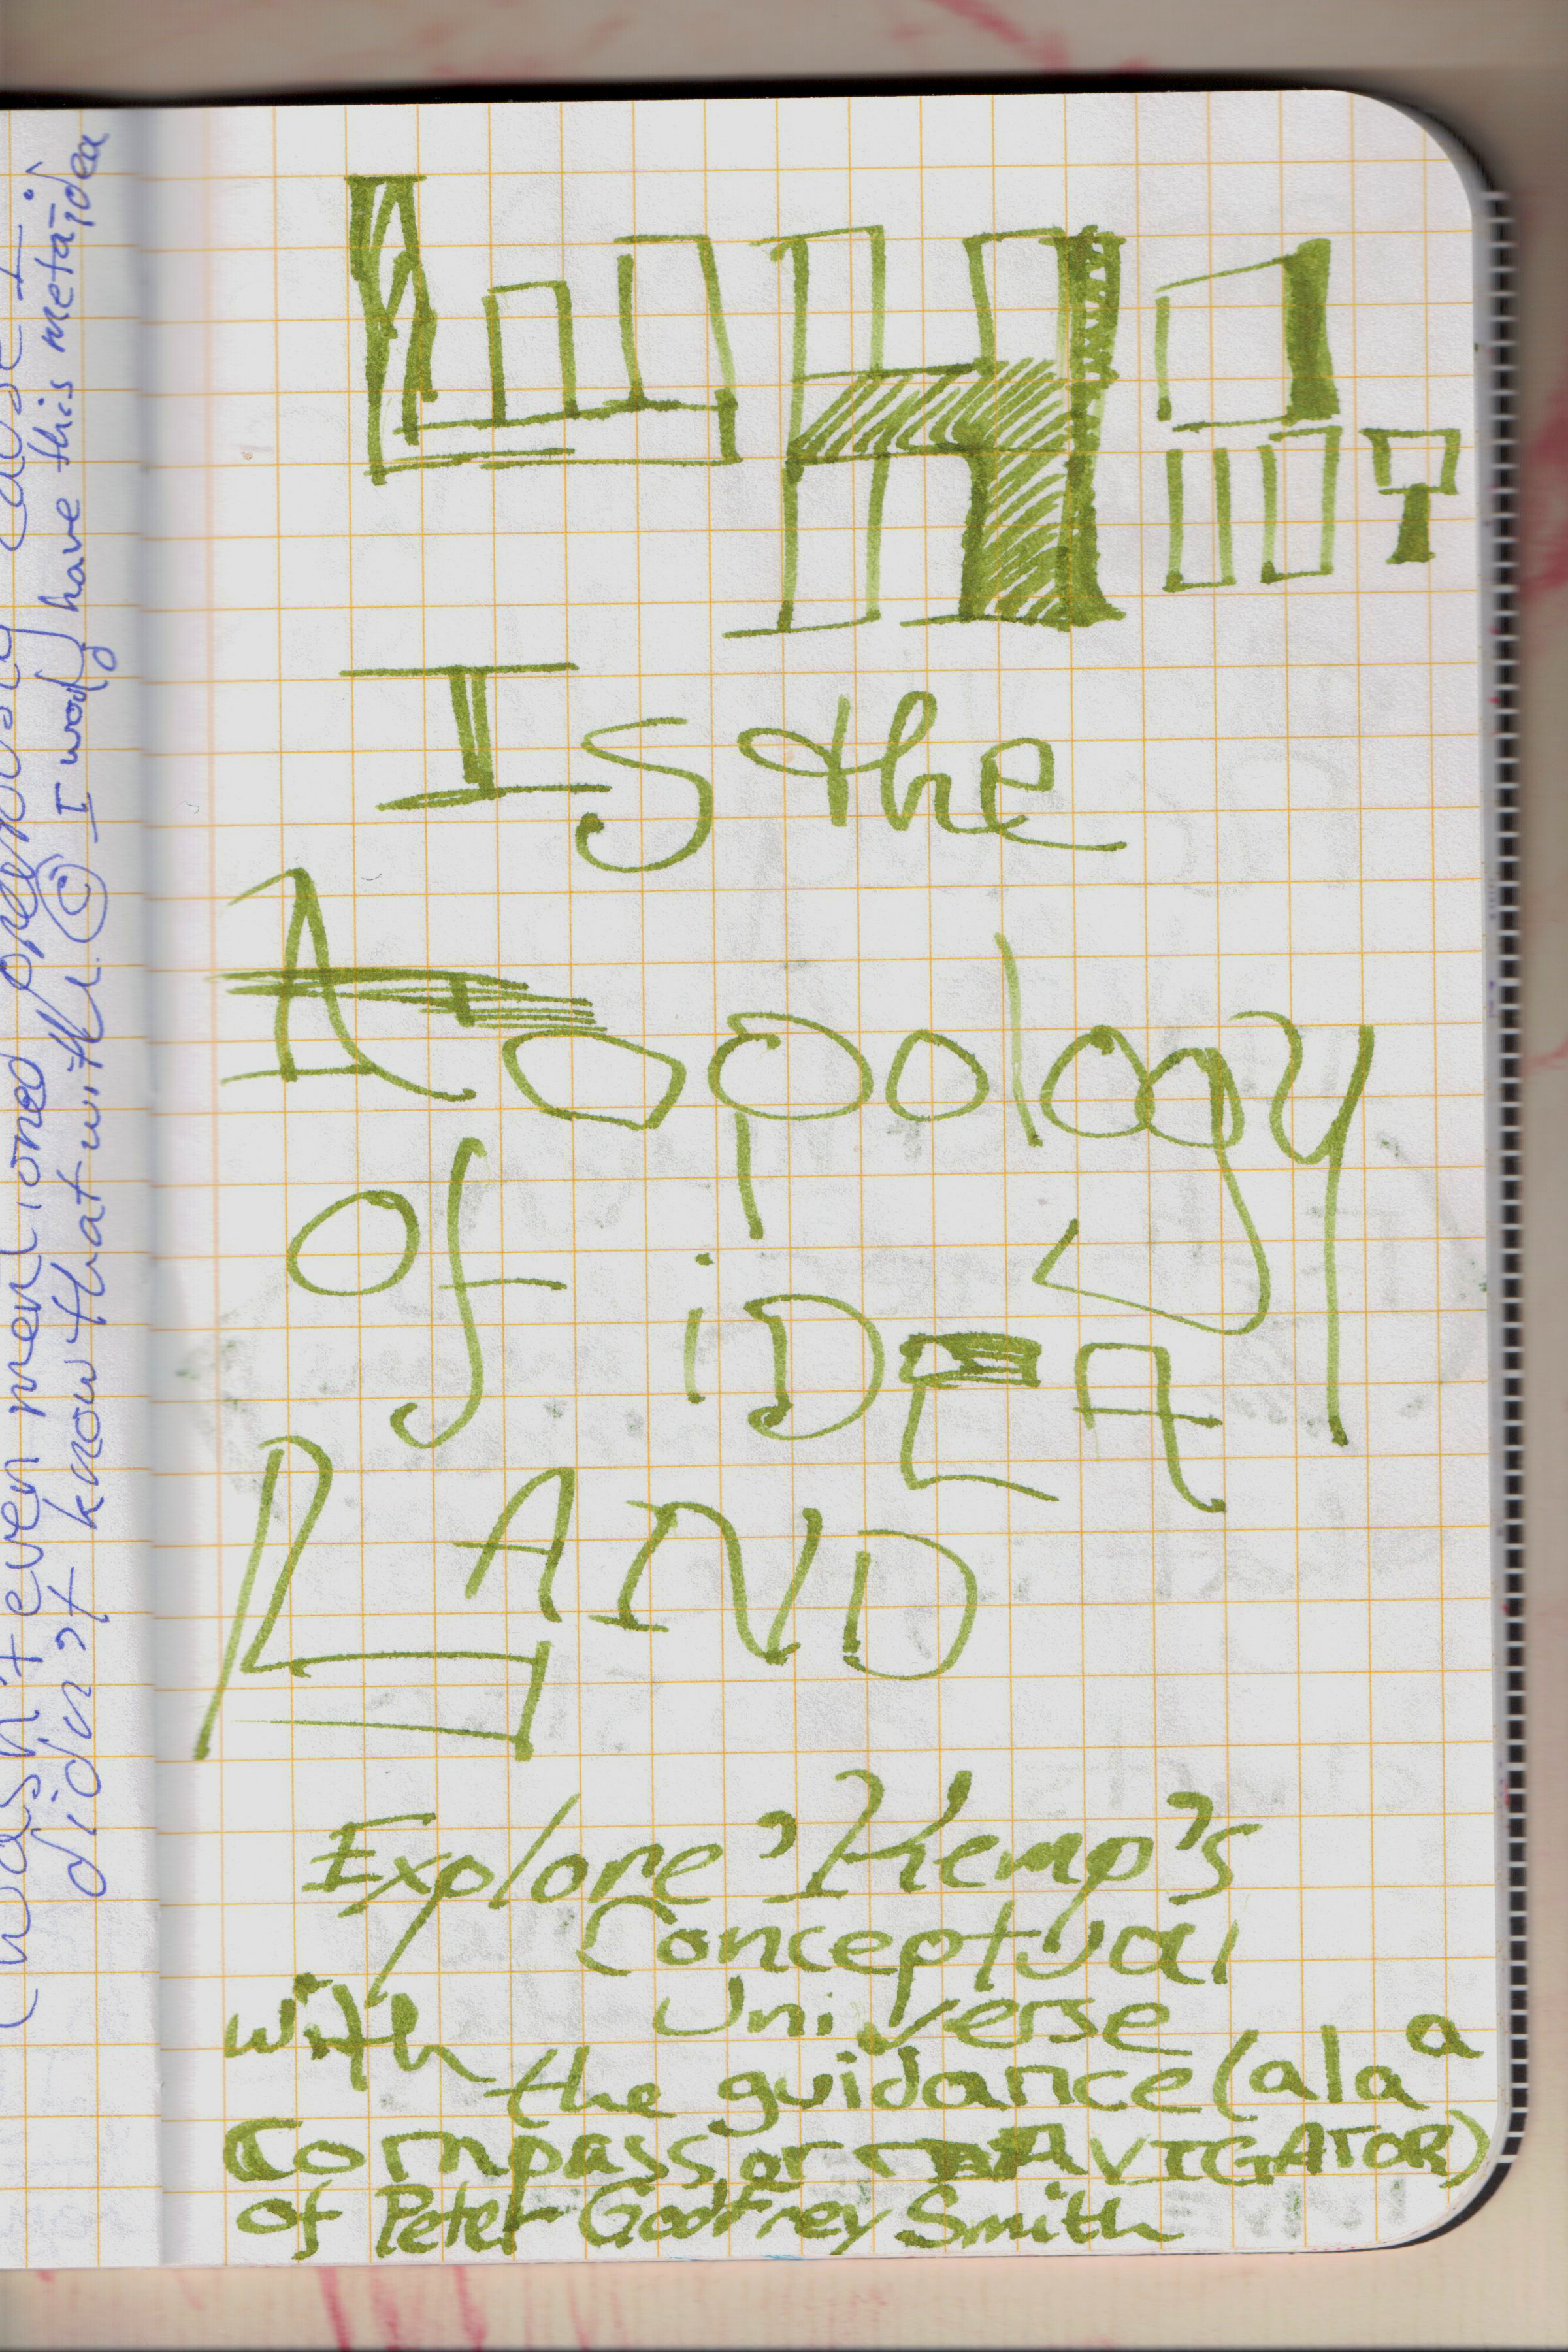 WHAT
Is the
Topology
Of iDEA
LAND
Explore Kemp's
Conceptual
Universe
with the guidance (a la a
Compass or NAVIGATOR)
of Peter Godfrey Smith
wasn't even mentioned previously cause I
didn't know that I have this meta-idea